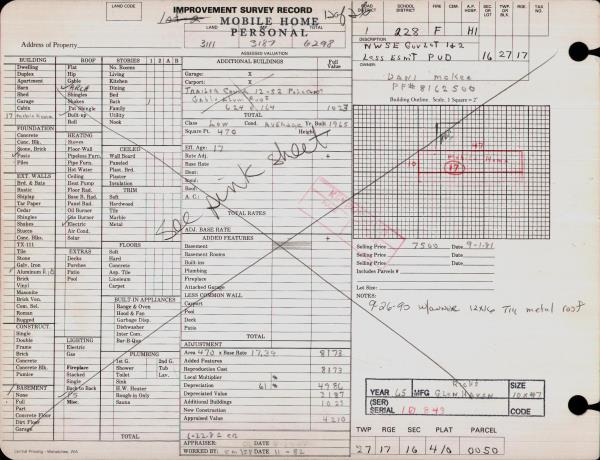 IMPROVEMENT SURVEY RECORD
MOBILE HOME
PERSONAL
LAND CODE
ROAD DISTRICT
SCHOOL DISTRICT
FIRE
A.P. HOSP.
SEC or LOT
TWP. or BLK.
RGE.
TAX NO.
1 228 F H1
3111 3187 6298
Address of Property
ASSESSED VALUATION
DESCRIPTION
NWSE Govlot 1&2
Less Esmt PUD 16 27 17
Dani McKee
PP# 8162500
Building Outline. Scale, 1 Square = 2'
BUILDING
Dwelling
Duplex
Apartment
Barn
Shed
Garage
Cabin
FOUNDATION
Concrete
Conc. Blk.
Stone, Brick
Posts
Piles
EXT. WALLS
Brd. & Bats
Rustic
Shiplap
Tar Paper
Cedar
Shingles
Shakes
Stucco
Conc. Blks.
TX 111
Tile
Stone
Galv. Iron
Aluminum Rib
Brick
Vinyl
Masonite
Brick Ven.
Com. Sel.
Roman
Rustic
CONSTRUCT.
Single
Double
Frame
Brick
Concrete
Concrete Blk.
Pumice
BASEMENT
None
Full
Part
Concrete Floor
Dirt Floor
Garage
ROOF
Flat
Hip
Gable
ARCH
Shingles
Shakes
Pat. Shingle
Built up
Roll
HEATING
Stove
Floor-Wall
Pipeless Furn.
Pipe Furn.
Hot Water
Heat Pump
Floor Rad.
Base B. Rad.
Panel Rad.
Oil Burner
Gas Burner
Electric
Air Cond.
Solar
EXTRAS
Decks
Porches
Patio
Pool
LIGHTING
Fireplace
Single
Back to Back
PS
Misc.
STORIES B 1 2 A B
No. Rooms
Living
Kitchen
Dining
Bedroom
Bath
Den
Utility
Nook
CEILED
Wall Board
Paneled
Plast. Brd.
Ceiling
Plaster
Insulation
TRIM
Soft
Hardwood
Tile
Marble
Metal
FLOORS
Soft
Hard
Concrete
Asp. Tile
Linoleum
Carpet
BUILT-IN APPLIANCES
Range & Oven
Hood & Fan
Garbage Disp.
Dishwasher
Inter Com.
Bar-B-Que
PLUMBING
1st G. 2nd G.
Shower Tub
Stacked Toilet
Sink
H.W. Heater
Rough In Only
Sauna
ADDITIONAL BUILDINGS Full Value
Garage: X
Carport: X
Class Low Cond. Average Yr. Built 1965
Square Ft. 470 Height
Eff. Age: 17
Rate Adj. +
Base Rate
Roof
A.C.
TOTAL RATES
ADJ. BASE RATE
ADDED FEATURES +
Basement
Basement Rooms
Built-ins
Plumbing
Fireplace
Attached Garage
LESS COMMON WALL
Carport
TOTAL
ADJUSTMENT
Area 470 x Base Rate 17.39 8173
Added Features
Reproduction Cost 8173
Local Multiplier %
Depreciation 61 % 4986
Depreciated Value 3187
Additional Buildings 1023
New Construction
Appraised Value 4210
See pink sheet
APPRAISER: DATE
WORKED BY: DATE 11-82
47
10
Mobl Home
17
Selling Price 7500 Date 9-1-81
Selling Price Date
Selling Price Date
Includes Parcels #
Lot Size:
NOTES:
9-26-90 w/owner 12x16 Tip metal roof
YEAR 65 MFG Glen Haven SIZE 10x47
(SER)
SERIAL CODE
TWP RGE SEC PLAT PARCEL
27 17 16 4/0 0050
Central Printing - Wenatchee, WA